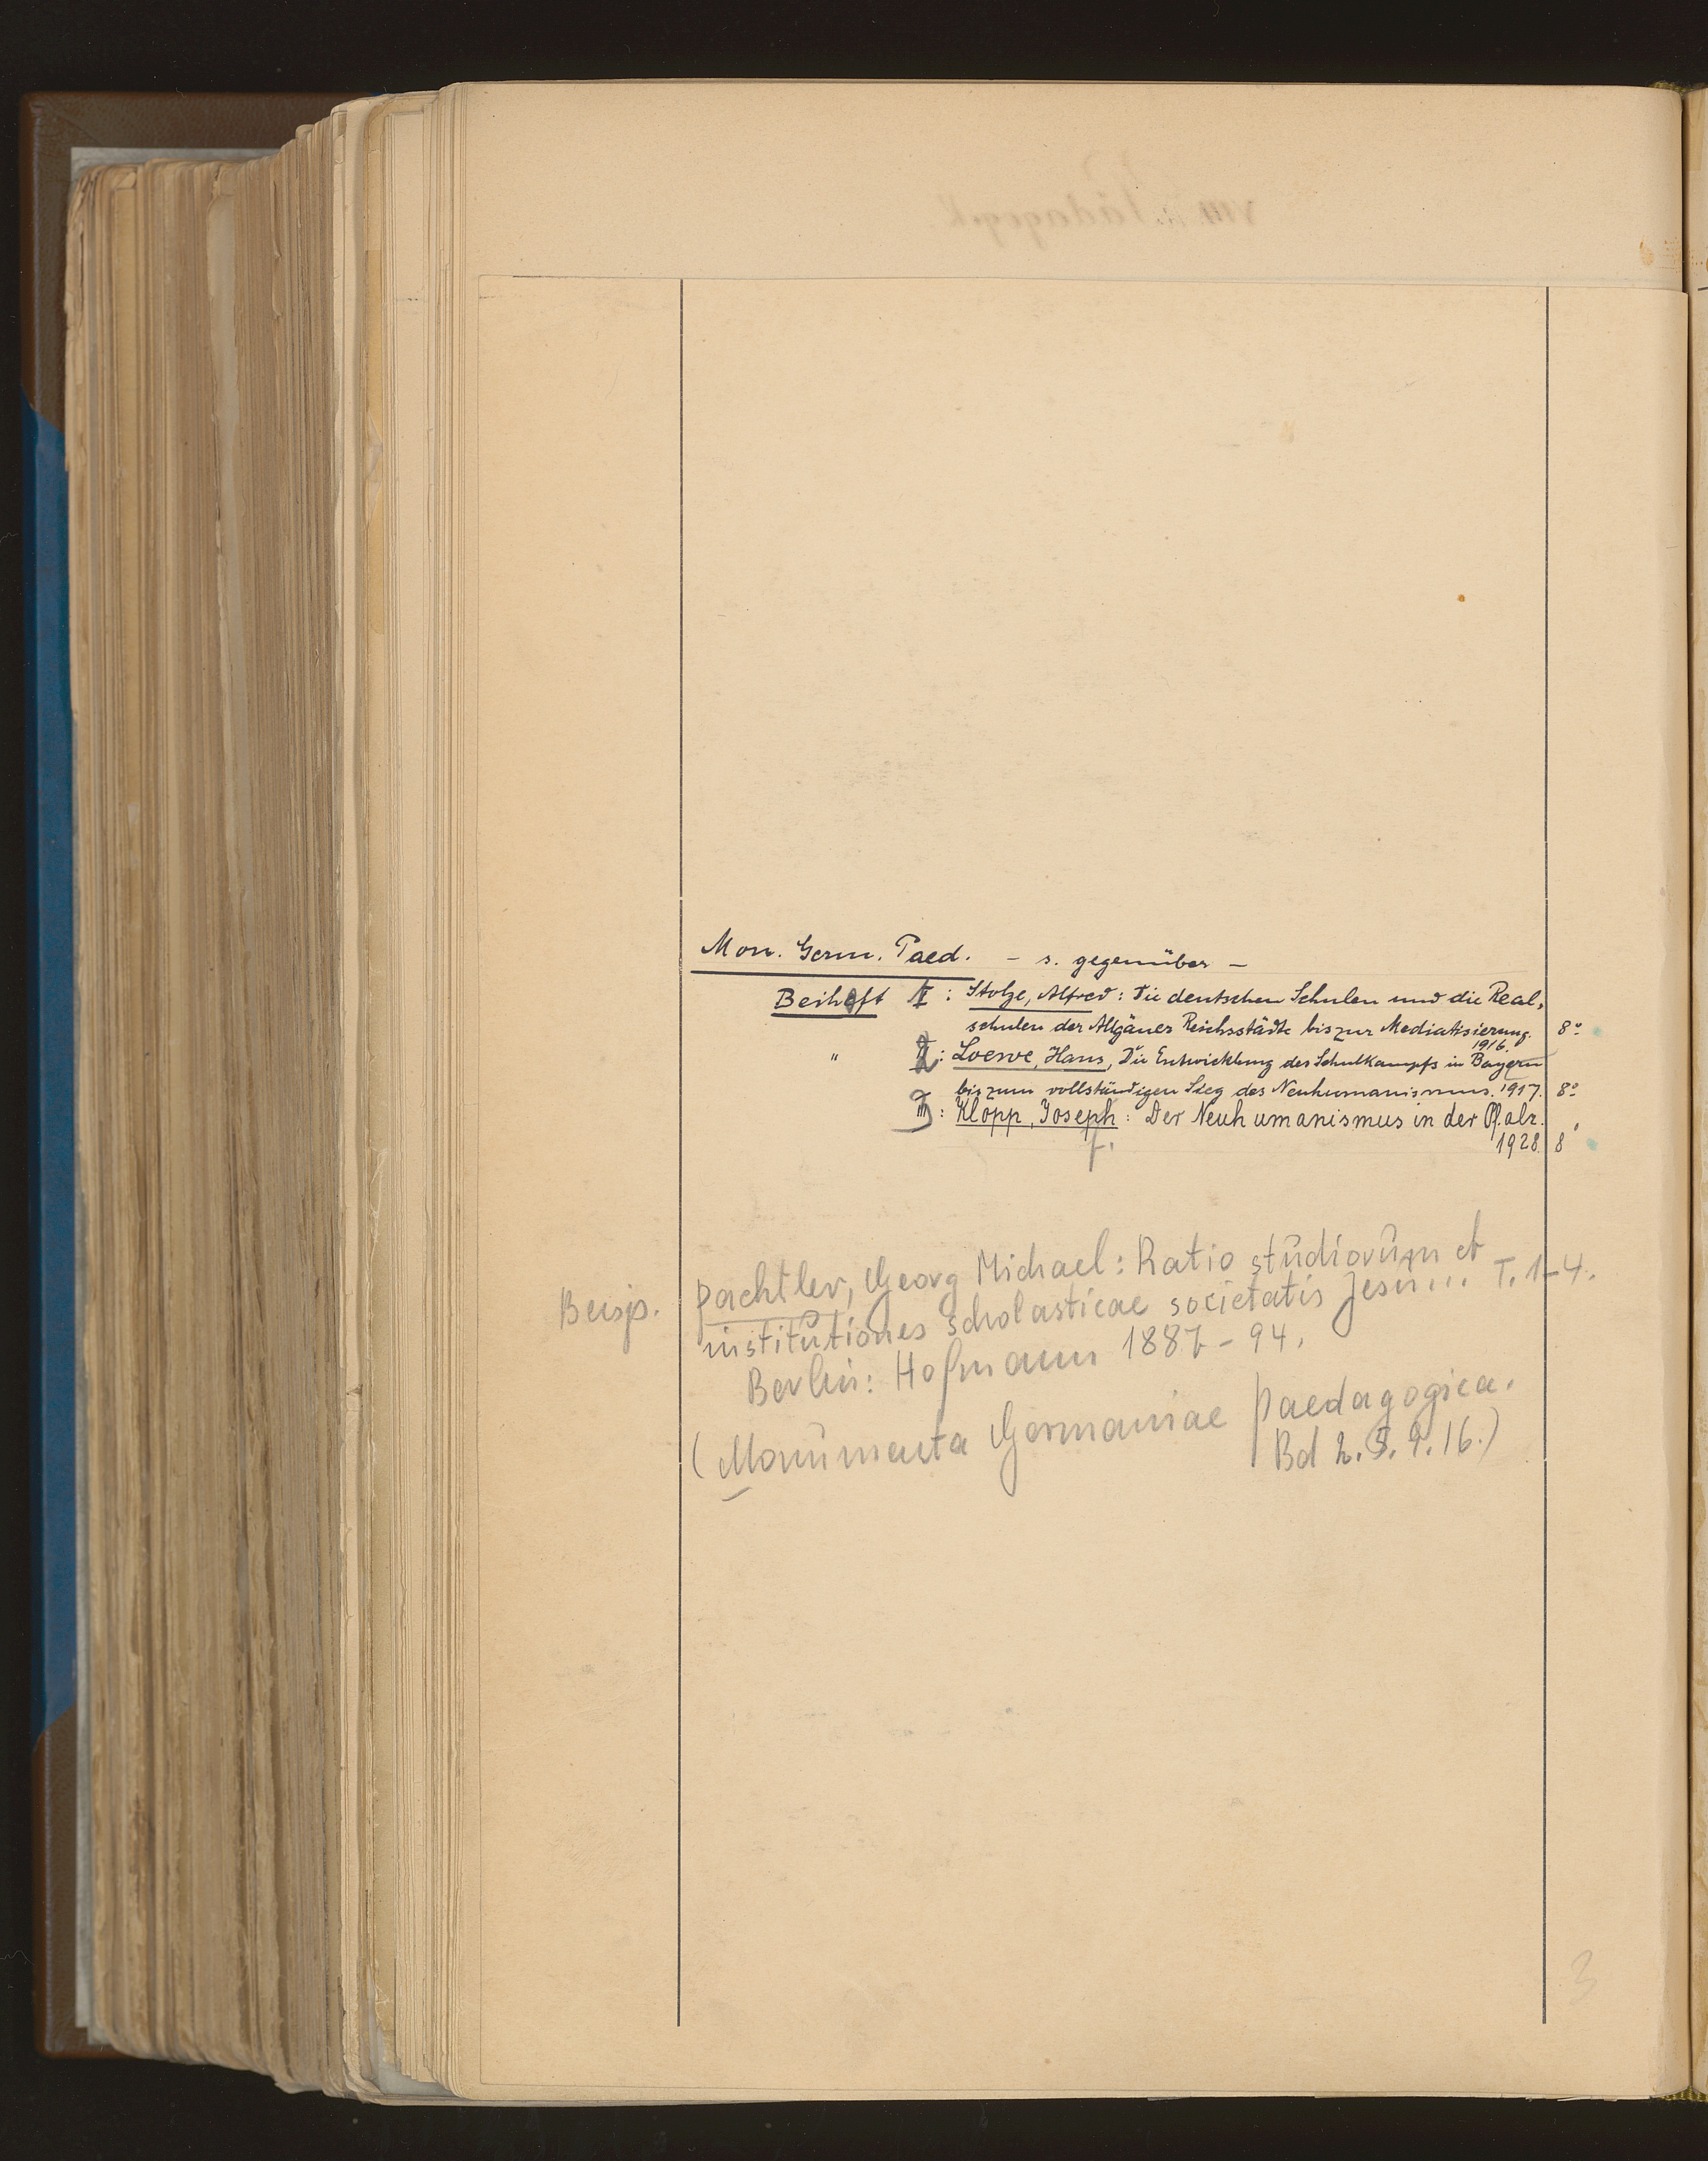 Mon. Germ. Paed. – s. gegenüber –
Beiheft I: Stolze, Alfred: Die deutschen Schulen und die Real-
schulen der Allgäuer Reichsstädte bis zur Mediatisierung. 8°
1916.
" II: Loewe, Hans, Die Entwicklung des Schulkampfs in Bayern
bis zum vollständigen Sieg des Neuhumanismus. 1917. 8°
III: Klopp, Joseph: Der Neuhumanismus in der Pfalz.
1928 8°
Pachtler, Georg Michael: Ratio studiorum et
Beisp. institutiones scholasticae societatis Jesu... T. 1–4.
Berlin: Hofmann 1887–94.
(Monumenta Germaniae Paedagogica.
Bd 2. 5. 9. 16.)
3